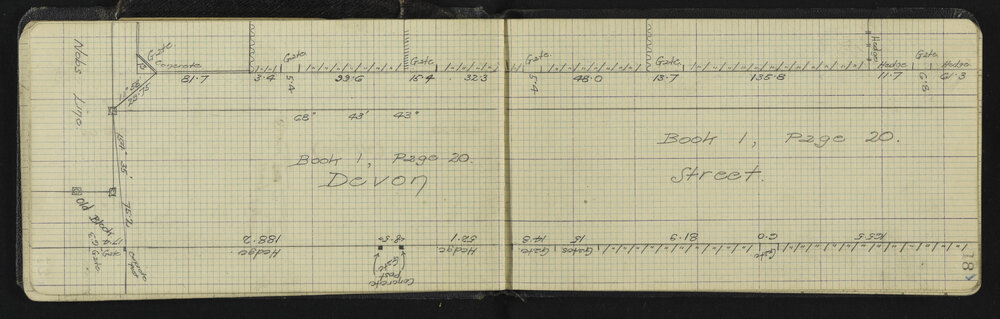 Nobs Line
Gate
Concrete
81.7
3.4
Gate
5.4
99.6
Gate
15.4
32.3
5.4
48.0
Gate
13.7
135.8
Hedge
11.7
Hedge
Gate
6.8
Hedge
61.3
68° 43' 43"
Book 1, Page 20.
Devon
Book 1, Page 20.
Street.
75.2
Old Block
Gate
Concrete Post
188.2
Hedge
Concrete Post
Gate
52.1
Hedge
14.8
Gate
15
Gates
81.9
6.0
Gate
165.5